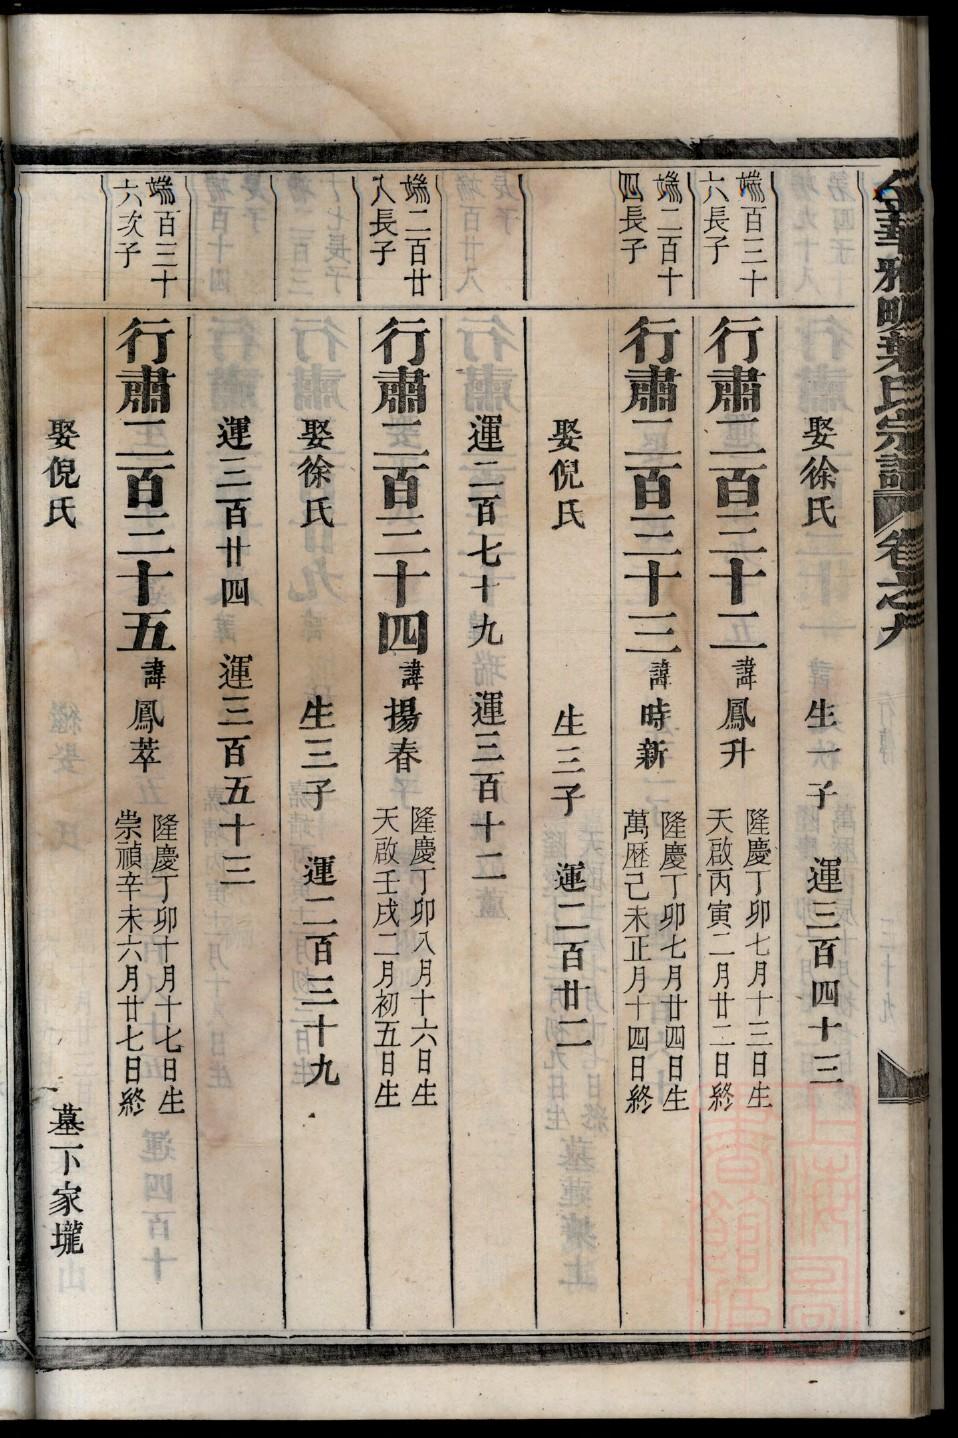 金華雅畈葉氏宗譜 卷之九
娶徐氏 生一子 運三百四十三
端百三十
六長子
行肅二百三十二 諱鳳升 隆慶丁卯七月十三日生
天啟丙寅二月廿二日終
端二百十
四長子
行肅二百三十三 諱時新 隆慶丁卯七月廿四日生
萬歷己未正月十四日終
娶倪氏 生三子 運二百廿二
運二百七十九 運三百十二
端二百廿
八長子
行肅二百三十四 諱揚春 隆慶丁卯八月十六日生
天啟壬戌二月初五日生
娶徐氏 生三子 運二百三十九
運三百廿四 運三百五十三
端百三十
六次子
行肅二百三十五 諱鳳萃 隆慶丁卯十月十七日生
崇禎辛未六月廿七日終
娶倪氏 墓下家壠